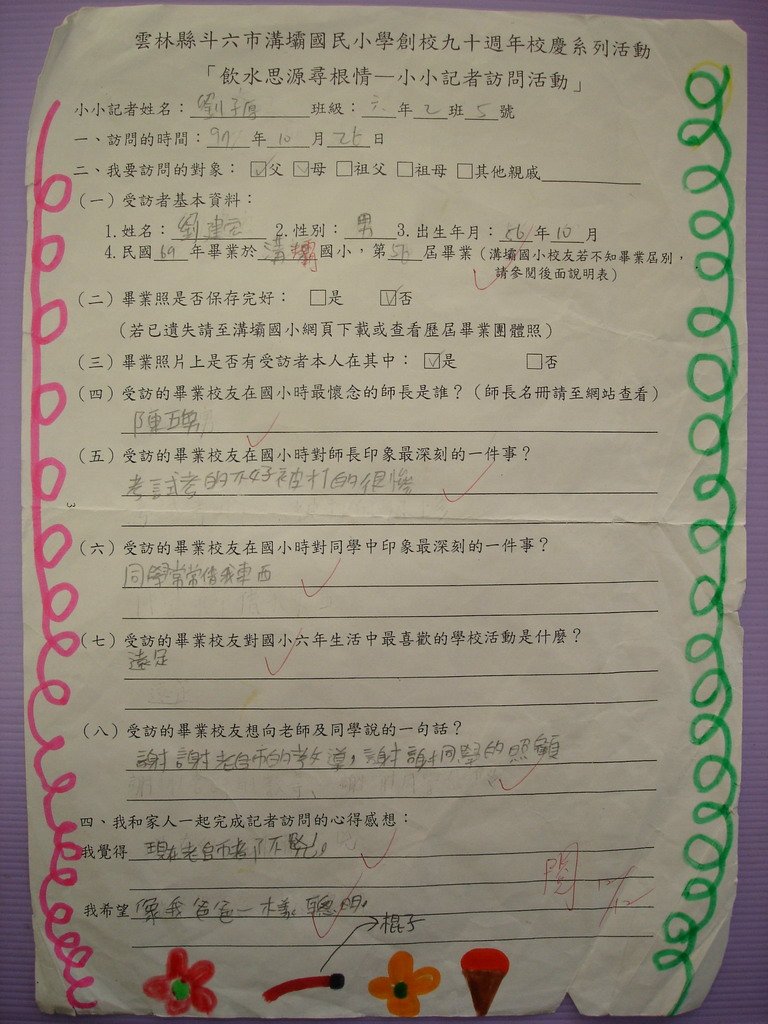 雲林縣斗六市溝壩國民小學創校九十週年校慶系列活動
「飲水思源尋根情—小小記者訪問活動」
小小記者姓名：劉子 班級：六年乙班5號
一、訪問的時間：97年10月25日
二、我要訪問的對象：☑父 ☑母 □祖父 □祖母 □其他親戚
（一）受訪者基本資料：
1.姓名：劉建 2.性別：男 3.出生年月：56年10月
4.民國69年畢業於溝壩國小，第56屆畢業（溝壩國小校友若不知畢業屆別，
請參閱後面說明表）
（二）畢業照是否保存完好： □是 ☑否
（若已遺失請至溝壩國小網頁下載或查看歷屆畢業團體照）
（三）畢業照片上是否有受訪者本人在其中：☑是 □否
（四）受訪的畢業校友在國小時最懷念的師長是誰？（師長名冊請至網站查看）
陳五男
（五）受訪的畢業校友在國小時對師長印象最深刻的一件事？
考試考的不好被打的很慘
3
（六）受訪的畢業校友在國小時對同學中印象最深刻的一件事？
同學常常借我東西
（七）受訪的畢業校友對國小六年生活中最喜歡的學校活動是什麼？
遠足
（八）受訪的畢業校友想向老師及同學說的一句話？
謝謝老師的教導，謝謝同學的照顧
四、我和家人一起完成記者訪問的心得感想：
我覺得 現在老師都不
我希望 像我爸爸一樣聰明。
棍子
閱 12/12